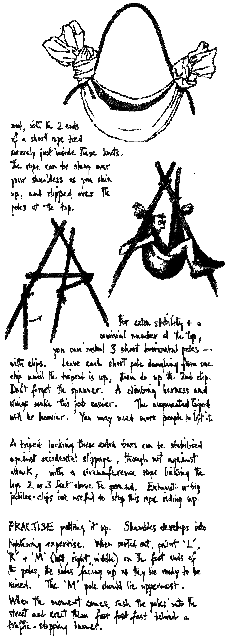 and, with the 2 ends
of a short rope tied
securely just inside these knots.
The rope can be slung over
your shoulders as you shin
up, and slipped over the
poles at the top.
For extra stability & a
universal number at the top,
you can install 3 short horizontal poles --
with clips. Leave each short pole dangling from one
clip until the tripod is up, then do up the 2nd clip.
Don't forget the spanner. A climbing harness and
slings make this job easier. The augmented tripod
will be heavier. You may need more people to lift it.
A tripod lacking these extra bars can be stabilised
against accidental slippage, though not against
attack, with a circumference rope linking the
legs 2 or 3 feet above the ground. Exhaust or big
jubilee-clips are useful to stop this rope riding up.
PRACTISE putting it up. Shambles develops into
lightning expertise. When sorted out, paint 'L',
'R' & 'M' (left, right, middle) on the foot ends of
the poles, the sides facing up as they lie ready to be
raised. The 'M' pole should lie uppermost.
When the moment comes, rush the poles into the
street and erect them fast fast fast behind a
traffic-stopping banner.